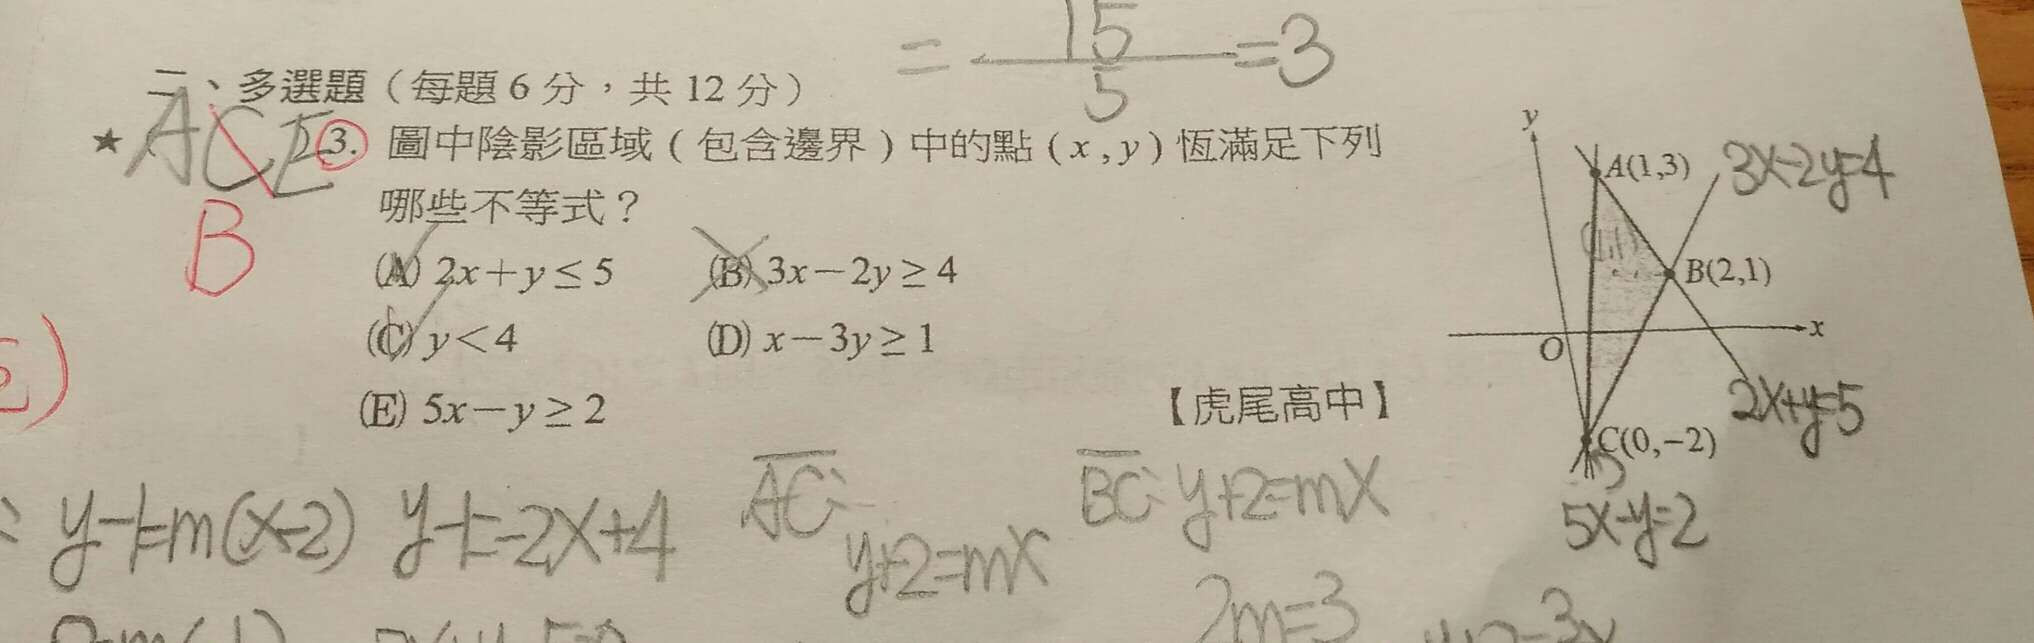 = 15/5 = 3
二、多選題（每題 6 分，共 12 分）
ACE
B
★ 3. 圖中陰影區域（包含邊界）中的點（x , y）恆滿足下列
哪些不等式？
(A) 2x＋y ≤ 5 (B) 3x－2y ≥ 4
(C) y＜4 (D) x－3y ≥ 1
(E) 5x－y ≥ 2 【虎尾高中】
y
A(1,3) 3x-2y=4
B(2,1)
x
O
2x+y=5
C(0,−2)
5x-y=2
y-1=m(x-2) y-1=-2x+4 AC: BC: y+2=mx
y+2=mx
2m=3